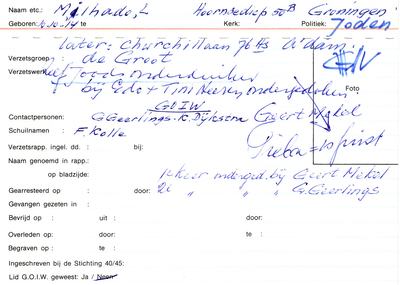 Naam etc.: Milhado, L Hoornsediep 50B Groningen
Geboren: 10.10.14 te Kerk: Politiek: Joden
later: Churchilllaan 76 Hs A'dam.
Verzetsgroep : de Groot
Verzetswerk: Joods onderduiker
bij Edo + Tini ondergedoken.
Foto
G.O.I.W
Contactpersonen: G Geerlings - K. Dijkstra Geert Mekel
Schuilnaam : F. Kolle
Verzetsrapp. ingel. dd. : bij:
Naam genoemd in rapp.:
op bladzijde: 1e keer onderged. bij Geert Mekel
Gearresteerd op : door: 2e " " " G. Geerlings
Gevangen gezeten in :
Bevrijd op : uit : door:
Overleden op : te: door:
Begraven op : te:
Ingeschreven bij de Stichting 40/45:
Lid G.O.I.W. geweest: Ja / Neen